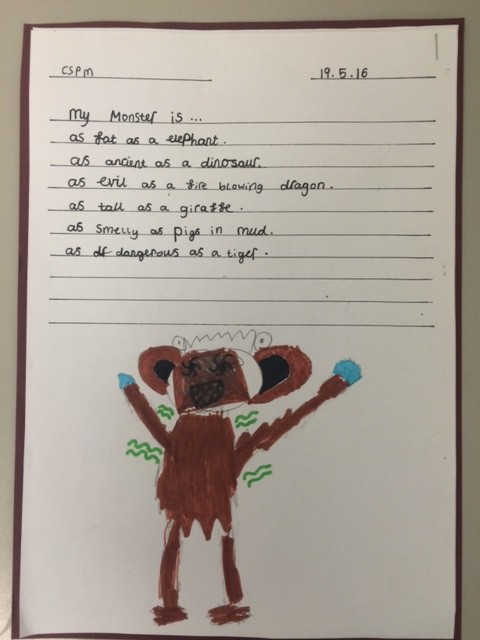 CSPM
19.5.16
My Monster is ...
as fat as a elephant.
as ancient as a dinosaur.
as evil as a fire blowing dragon.
as tall as a giraffe.
as smelly as pigs in mud.
as dangerous as a tiger.